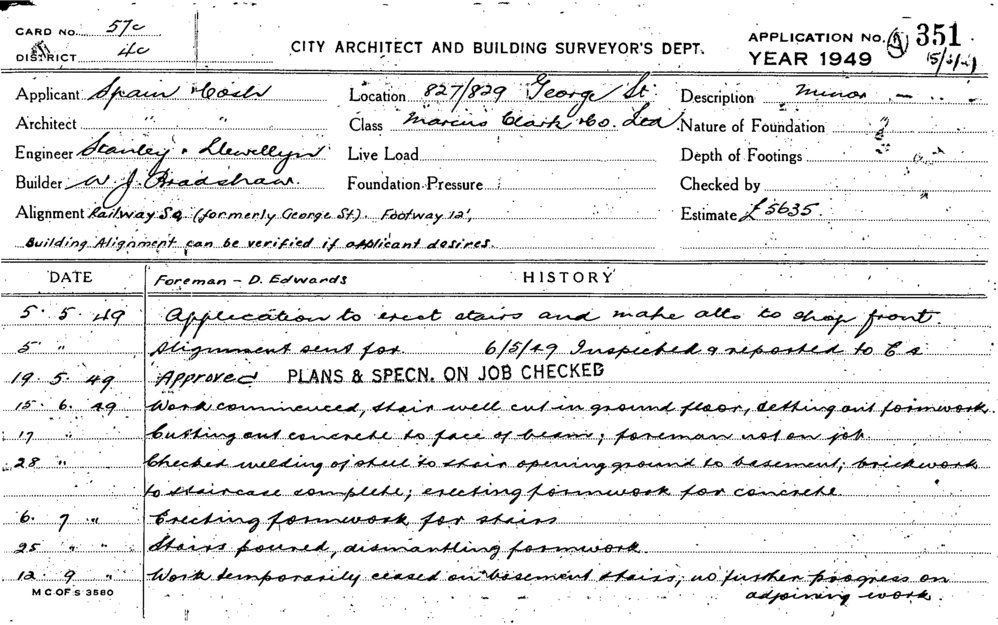 CARD No. 57c
DISTRICT 4c
CITY ARCHITECT AND BUILDING SURVEYOR'S DEPT.
APPLICATION No. 351
YEAR 1949
Applicant Spain & Cosh Location 827/829 George St. Description Minor
Architect " " Class Marcus Clark & Co. Ltd Nature of Foundation
Engineer Stanley & Llewellyn Live Load Depth of Footings
Builder W. J. Bradshaw. Foundation Pressure Checked by
Alignment Railway Sq (formerly George St). Footway 12', Estimate £5635.
Building Alignment can be verified if applicant desires.
DATE Foreman - D. Edwards HISTORY
5. 5. 49 Application to erect stairs and make alts to shop front.
5 " Alignment sent for. 6/5/49 Inspected & reported to C s
19. 5. 49 Approved PLANS & SPECN. ON JOB CHECKED
15. 6. 49 Work commenced, stair well cut in ground floor, setting out formwork.
17 " Cutting out concrete to face of beam; foreman not on job.
28 " Checked welding of steel to stair opening ground to basement; brickwork
to staircase complete; erecting formwork for concrete
6. 7 " Erecting formwork for stairs
25 " " Stairs poured, dismantling formwork.
12. 9 " Work temporarily ceased on basement stairs; no further progress on
adjoining work.
M C OF S 3580